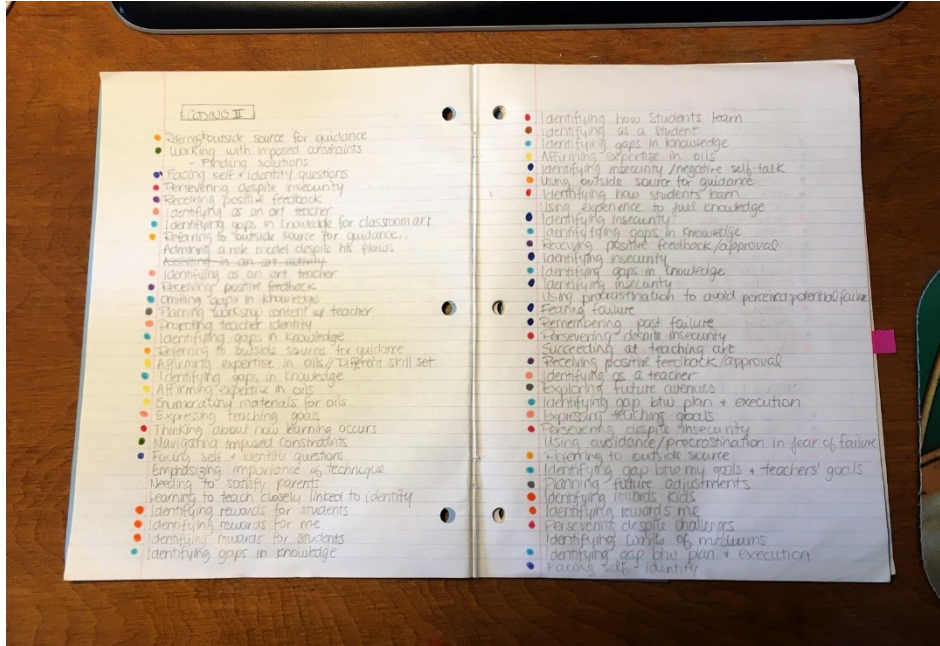 CODING II
Referring outside source for guidance
Working with imposed constraints
- Finding solutions
Facing self + identity questions
Persevering despite insecurity
Receiving positive feedback
Identifying as an art teacher
Identifying gaps in knowledge for classroom art
Referring to outside source for guidance.
Admiring a role model despite his flaws
Assisting in an art activity
Identifying as an art teacher
Receiving positive feedback
Omitting gaps in knowledge
Planning workshop content w/ teacher
Projecting teacher identity
Identifying gaps in knowledge
Referring to outside source for guidance
Affirming expertise in oils // Different skill set
Identifying gaps in knowledge
Affirming expertise in oils
Enumerating materials for oils
Expressing teaching goals
Thinking about how learning occurs
Navigating imposed constraints
Facing self + identity questions
Emphasizing importance of technique
Needing to satisfy parents
Learning to teach closely linked to identity
Identifying rewards for students
Identifying rewards for me
Identifying rewards for students
Identifying gaps in knowledge
Identifying how students learn
Identifying as a student
Identifying gaps in knowledge
Affirming expertise in oils
Identifying insecurity / negative self-talk
Using outside source for guidance
Identifying how students learn
Using experience to fuel knowledge
Identifying insecurity
Identifying gaps in knowledge
Receiving positive feedback/approval
Identifying insecurity
Identifying gaps in knowledge
Identifying insecurity
Using procrastination to avoid perceived potential failure
Fearing failure
Remembering past failure
Persevering despite insecurity
Succeeding at teaching art
Receiving positive feedback/approval
Identifying as a teacher
Exploring future avenues
Identifying gap btw plan + execution
Expressing teaching goals
Persevering despite insecurity
Using avoidance/procrastination in fear of failure
Referring to outside source
Identifying gap btw my goals + teachers' goals
Planning future adjustments
Identifying rewards kids
Identifying rewards me
Persevering despite challenges
Identifying limits of mediums
Identifying gap btw plan + execution
Facing self - identity